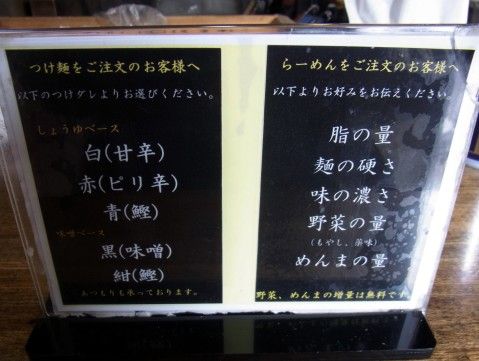 つけ麺をご注文のお客様へ
以下のつけダレよりお選びください。
しょうゆベース
白(甘辛)
赤(ピリ辛)
青(鰹)
味噌ベース
黒(味噌)
紺(鰹)
あつもりも承っております。
らーめんをご注文のお客様へ
以下よりお好みをお伝えください
脂の量
麺の硬さ
味の濃さ
野菜の量
(もやし、薬味)
めんまの量
野菜、めんまの増量は無料です